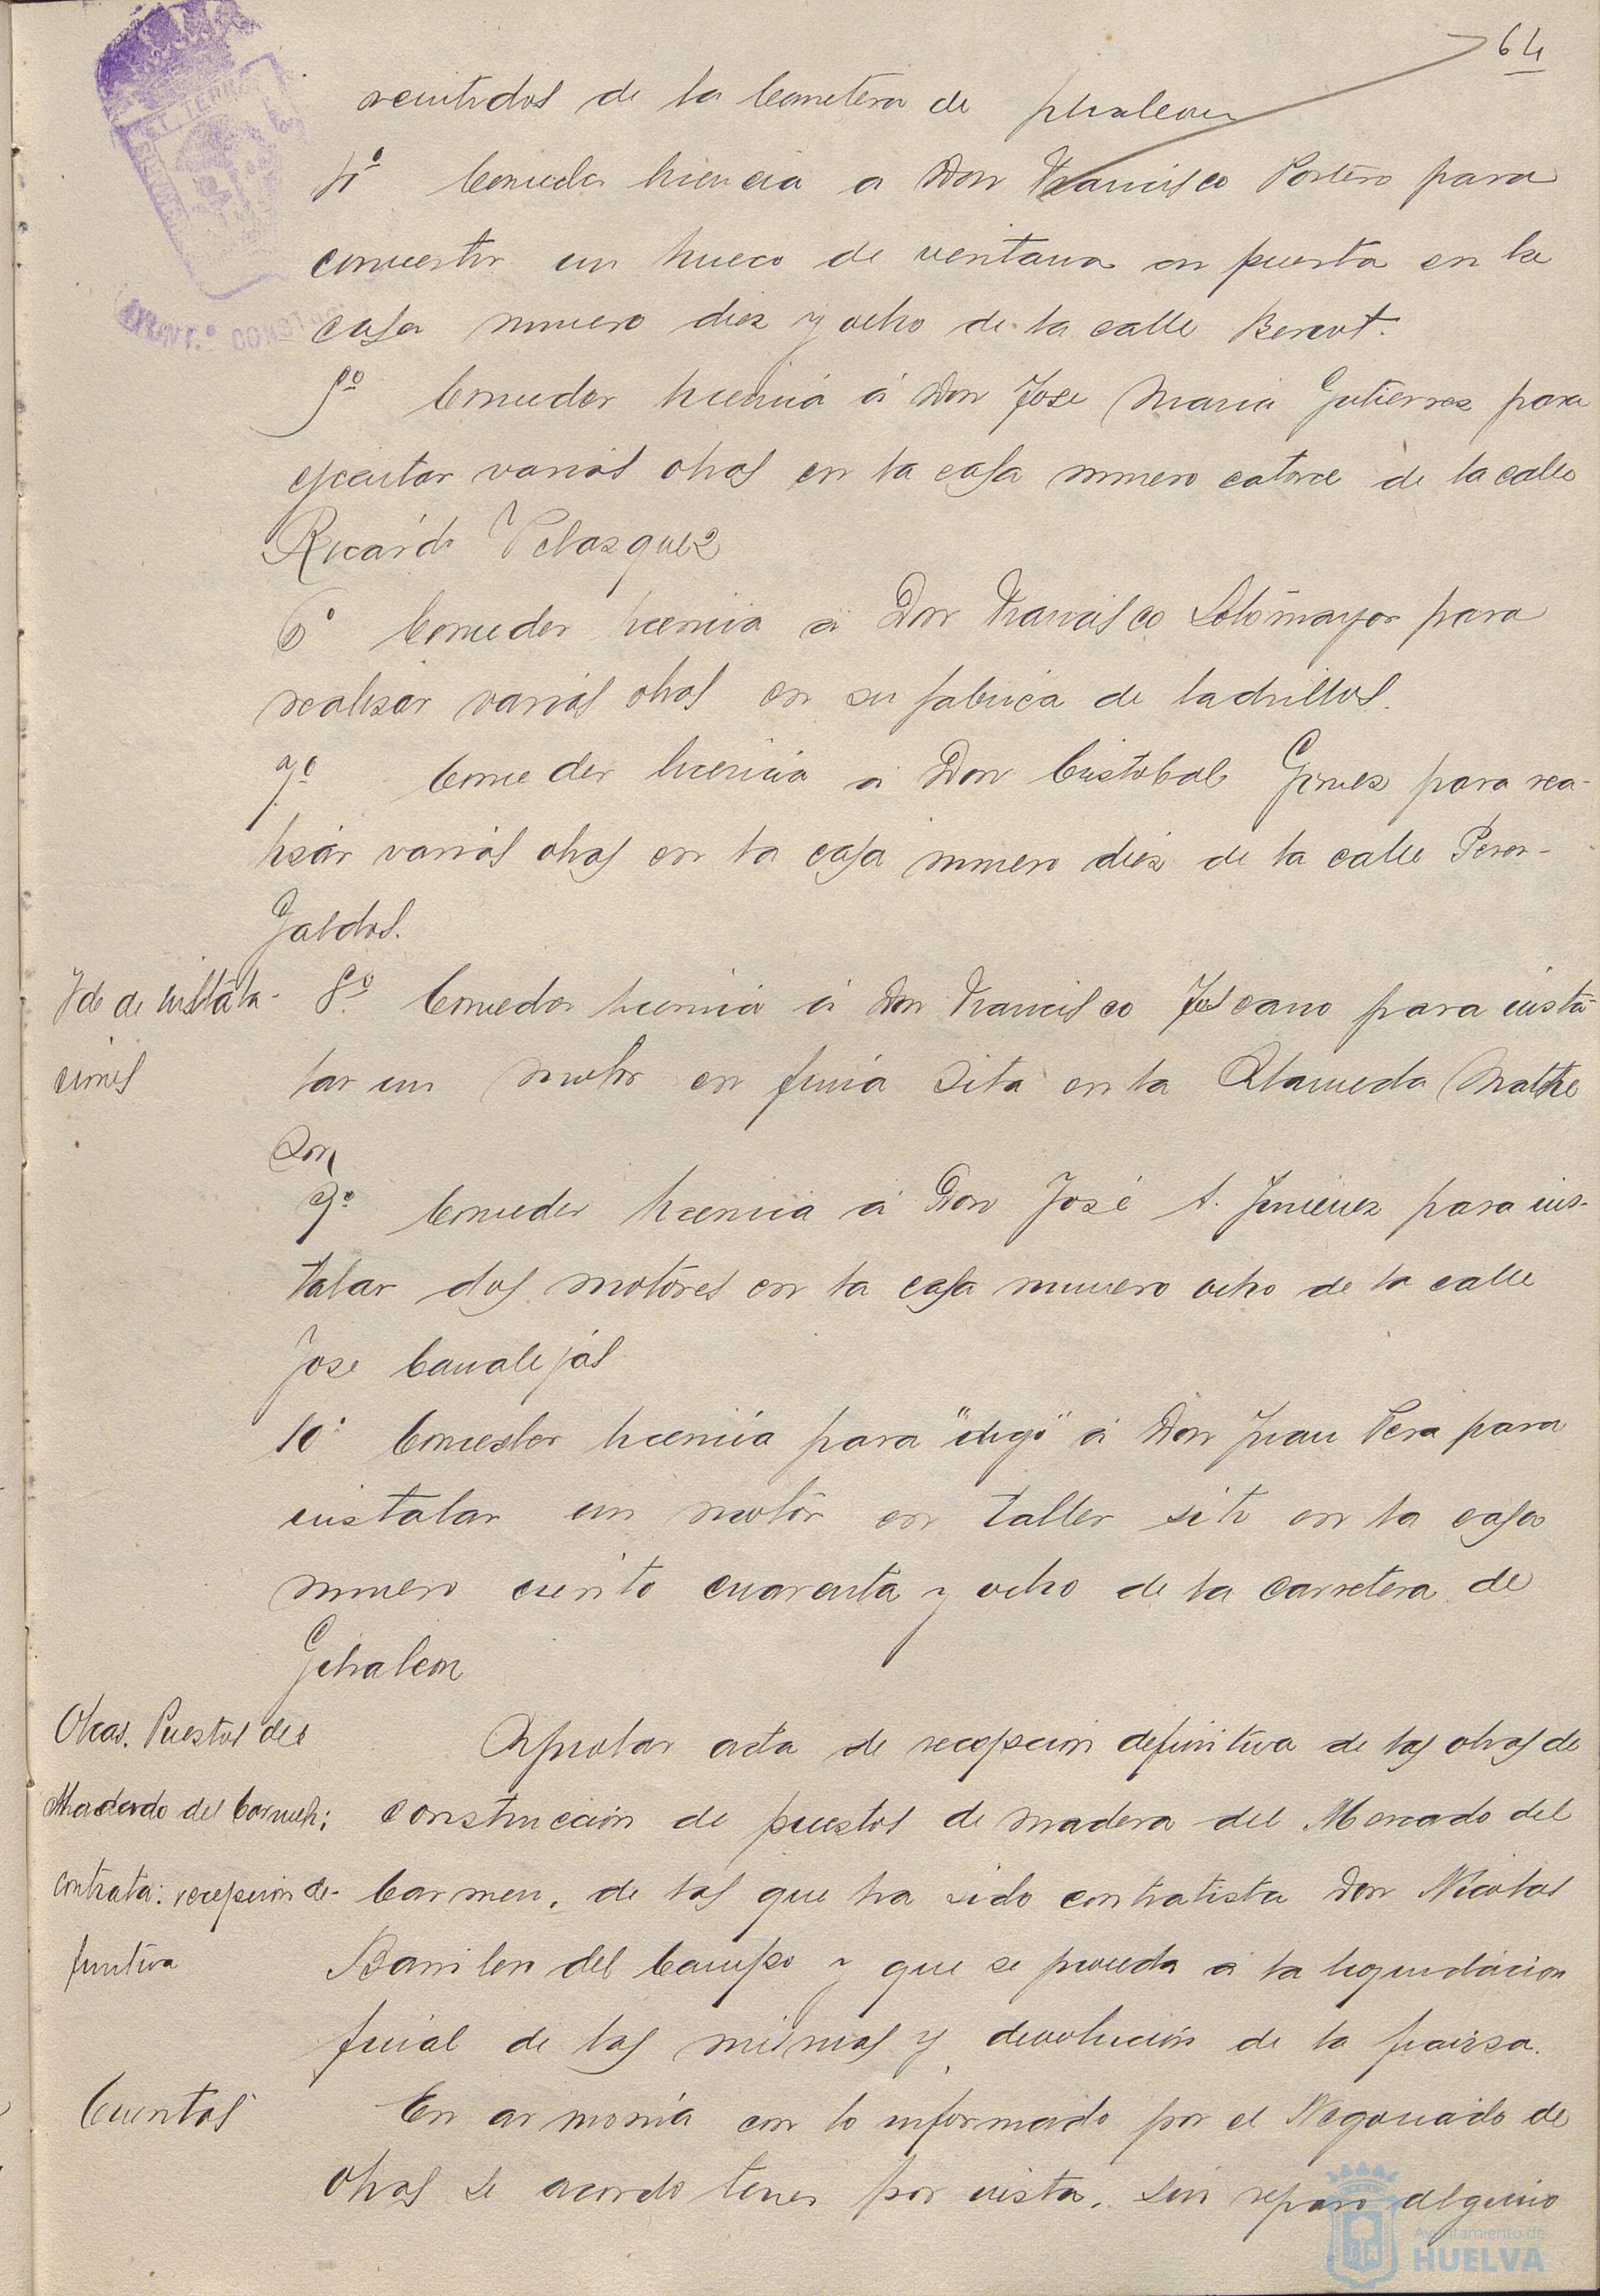 64
de la Carretera de
4º Conceder licencia a Don Francisco Portero para
convertir un hueco de ventana en puerta en la
casa numero diez y ocho de la calle Berdigon
5º Conceder licencia á Don Jose Maria Gutierrez para
ejecutar varias obras en la casa numero catorce de la calle
Ricardo Velazquez
6º Conceder licencia á Don Francisco Sotomayor para
realizar varias obras en su fabrica de ladrillos.
7º Conceder licencia á Don Cristobal Gomez para rea-
lizar varias obras en la casa numero diez de la calle Perez-
Galdos.
Id de instala-
ciones
8º Conceder licencia á Don Francisco Toscano para insta-
lar un motor en finca sita en la Alameda Mathe
son
9º Conceder licencia á Don José A. Jimenez para ins-
talar dos motores en la casa numero ocho de la calle
Jose Canalejas
10º Conceder licencia para "digo" á Don Juan Vera para
instalar un motor en taller sito en la casa
numero ciento cuarenta y ocho de la carretera de
Gibraleon
Obras. Puestos del
Mercado del Carmen;
contrata: recepcion de-
finitiva
Aprobar acta de recepcion definitiva de las obras de
construccion de puestos de madera del Mercado del
Carmen, de las que ha sido contratista Don Nicolas
del Campo y que se proceda á la liquidacion
final de las mismas y devolucion de la fianza.
Cuentas
En armonia con lo informado por el Negociado de
Obras se acordo tener por vista, sin reparo alguno
AYUNT.º CONST
Ayuntamiento de
HUELVA